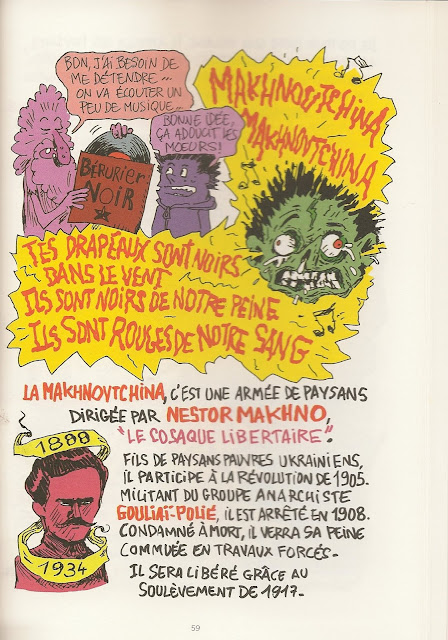 BON, J'AI BESOIN DE
ME DÉTENDRE...
ON VA ÉCOUTER UN
PEU DE MUSIQUE...
BONNE IDÉE,
ÇA ADOUCIT LES
MOEURS!
BÉRURIER
NOIR
MAKHNOVTCHINA
MAKHNOVTCHINA
TES DRAPEAUX SONT NOIRS
DANS LE VENT
ILS SONT NOIRS DE NOTRE PEINE
ILS SONT ROUGES DE NOTRE SANG
LA MAKHNOVTCHINA, C'EST UNE ARMÉE DE PAYSANS
DIRIGÉE PAR NESTOR MAKHNO,
"LE COSAQUE LIBERTAIRE".
1888
1934
FILS DE PAYSANS PAUVRES UKRAINIENS,
IL PARTICIPE À LA RÉVOLUTION DE 1905.
MILITANT DU GROUPE ANARCHISTE
GOULIAÏ-POLIÉ, IL EST ARRÊTÉ EN 1908.
CONDAMNÉ À MORT, IL VERRA SA PEINE
COMMUÉE EN TRAVAUX FORCÉS.
IL SERA LIBÉRÉ GRÂCE AU
SOULÈVEMENT DE 1917.
59